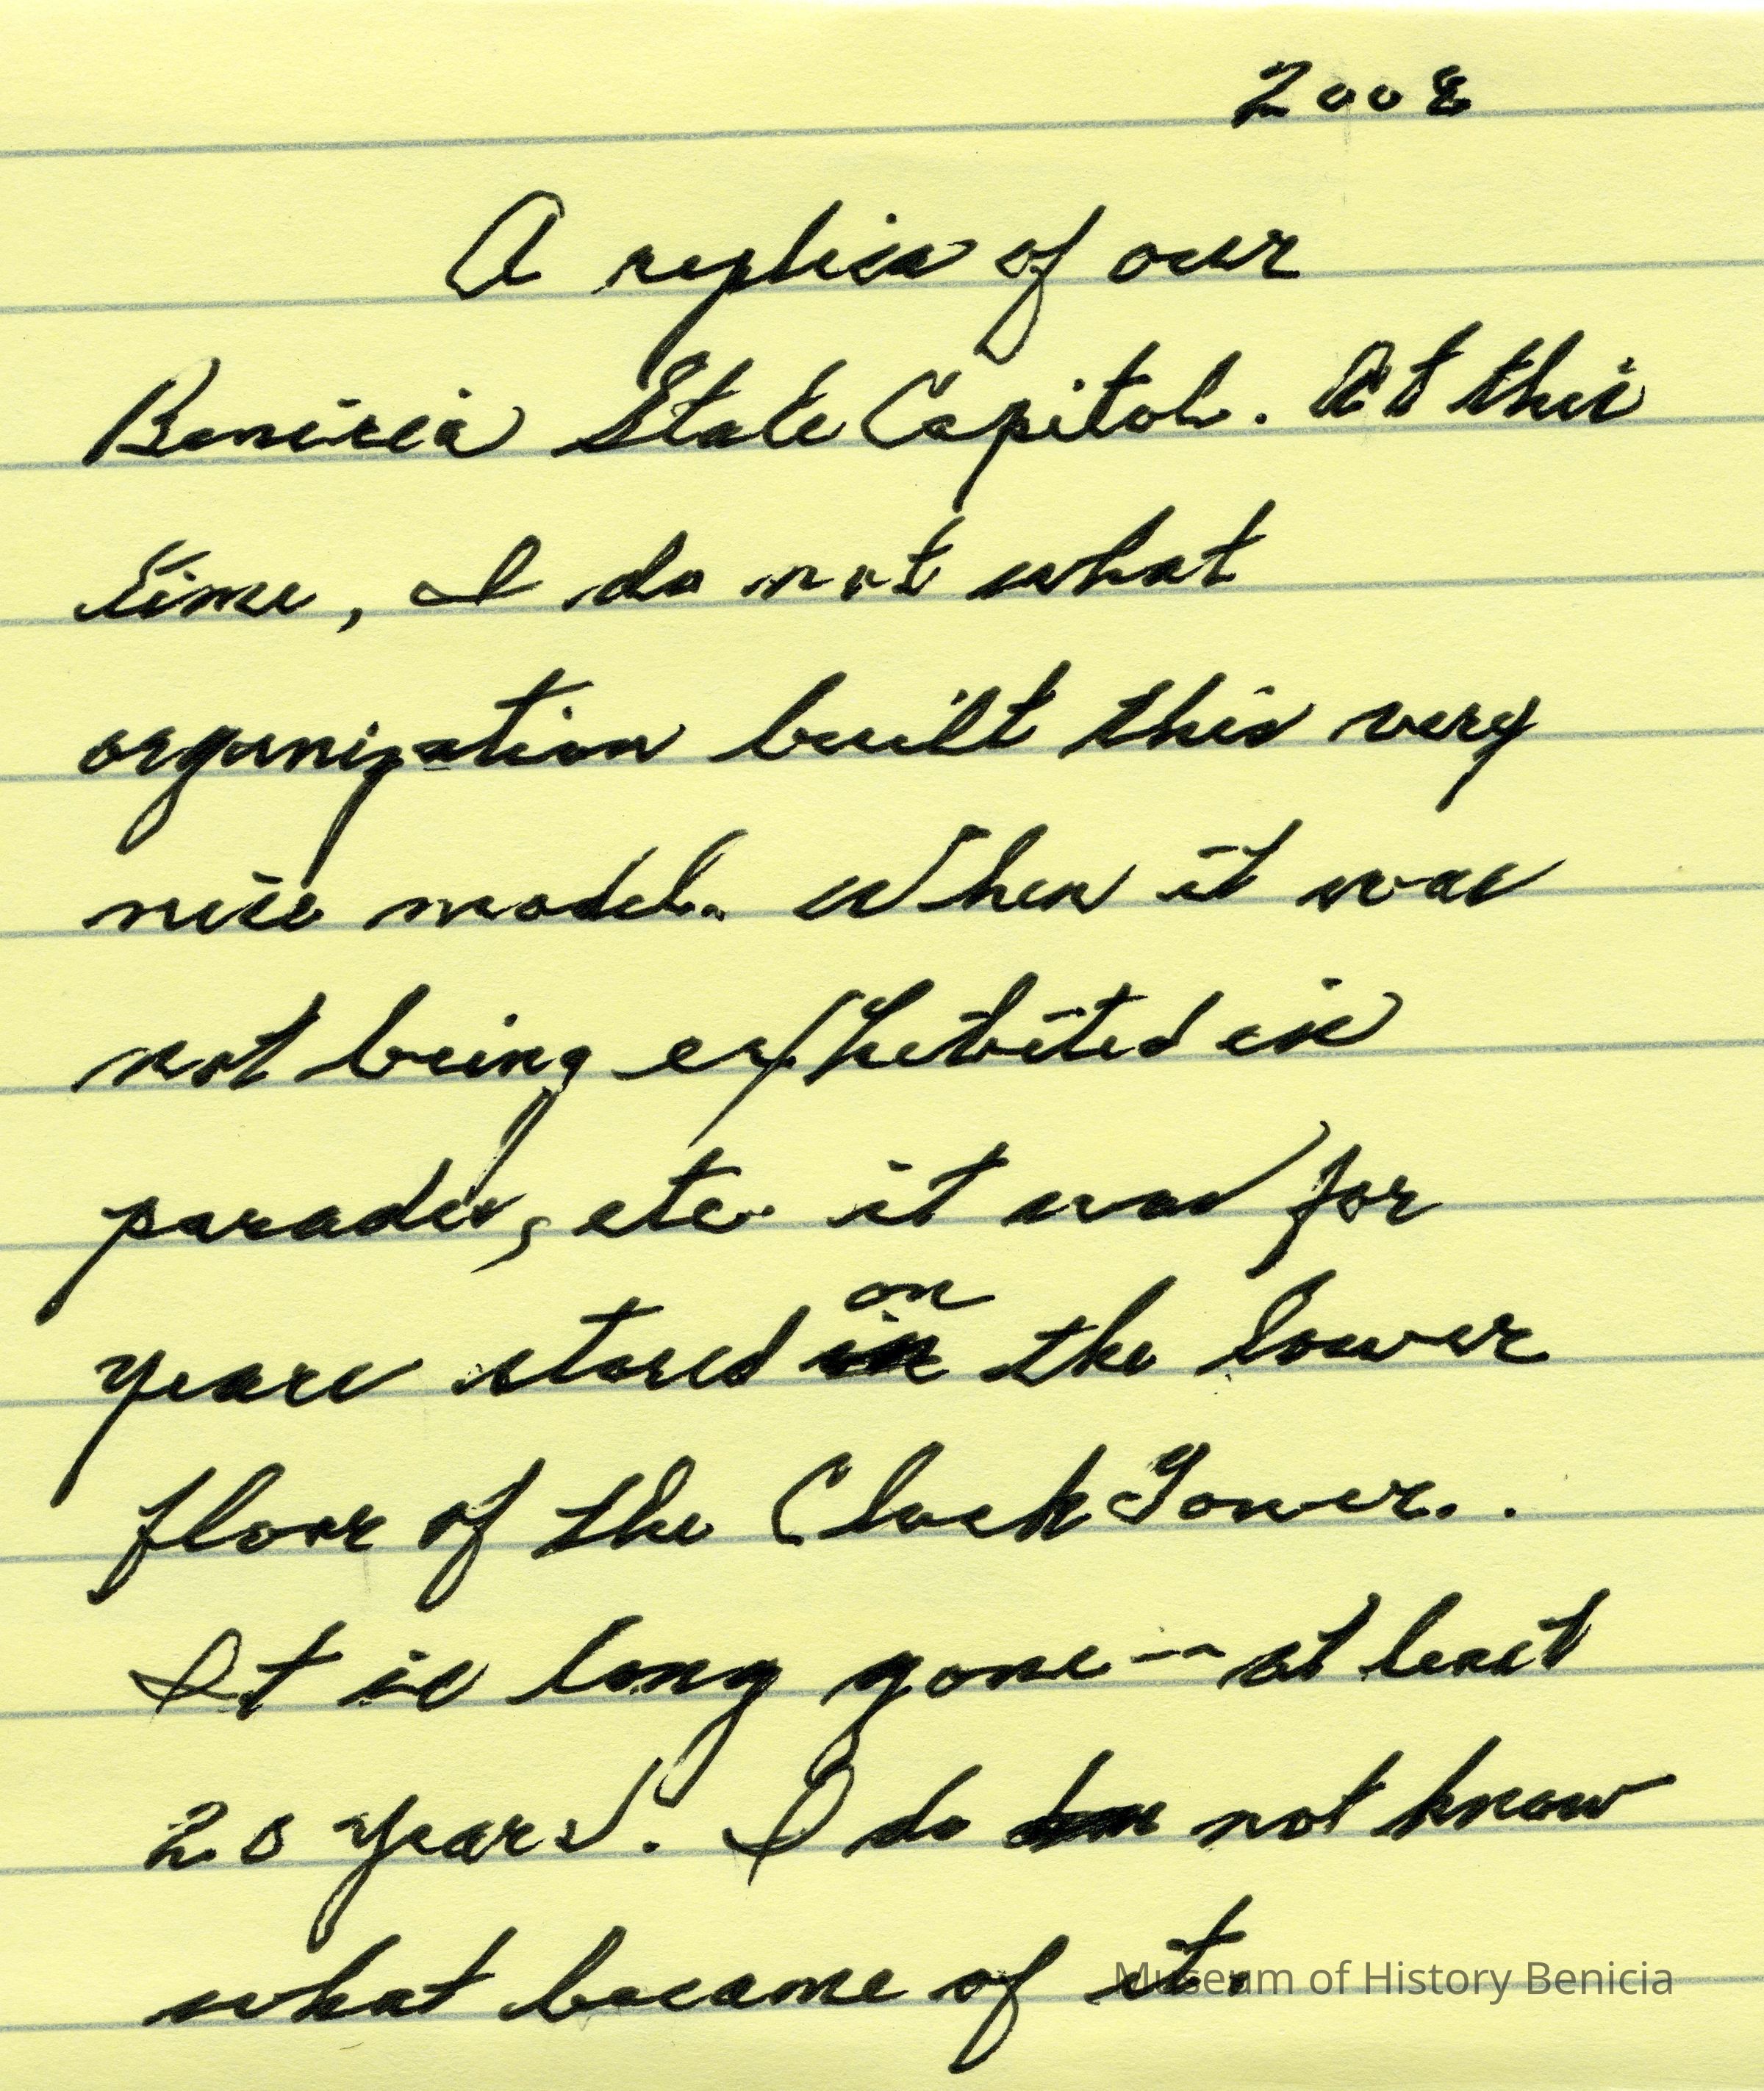 2008
A replica of our
Benicia State Capitol. At this
time, I do not what
organization built this very
nice model. When it was
not being exhibited in
parades, etc. it was for
on
years stored in the lower
floor of the Clock Tower..
It is long gone -- at least
20 years. I do not know
what became of it.
Museum of History Benicia